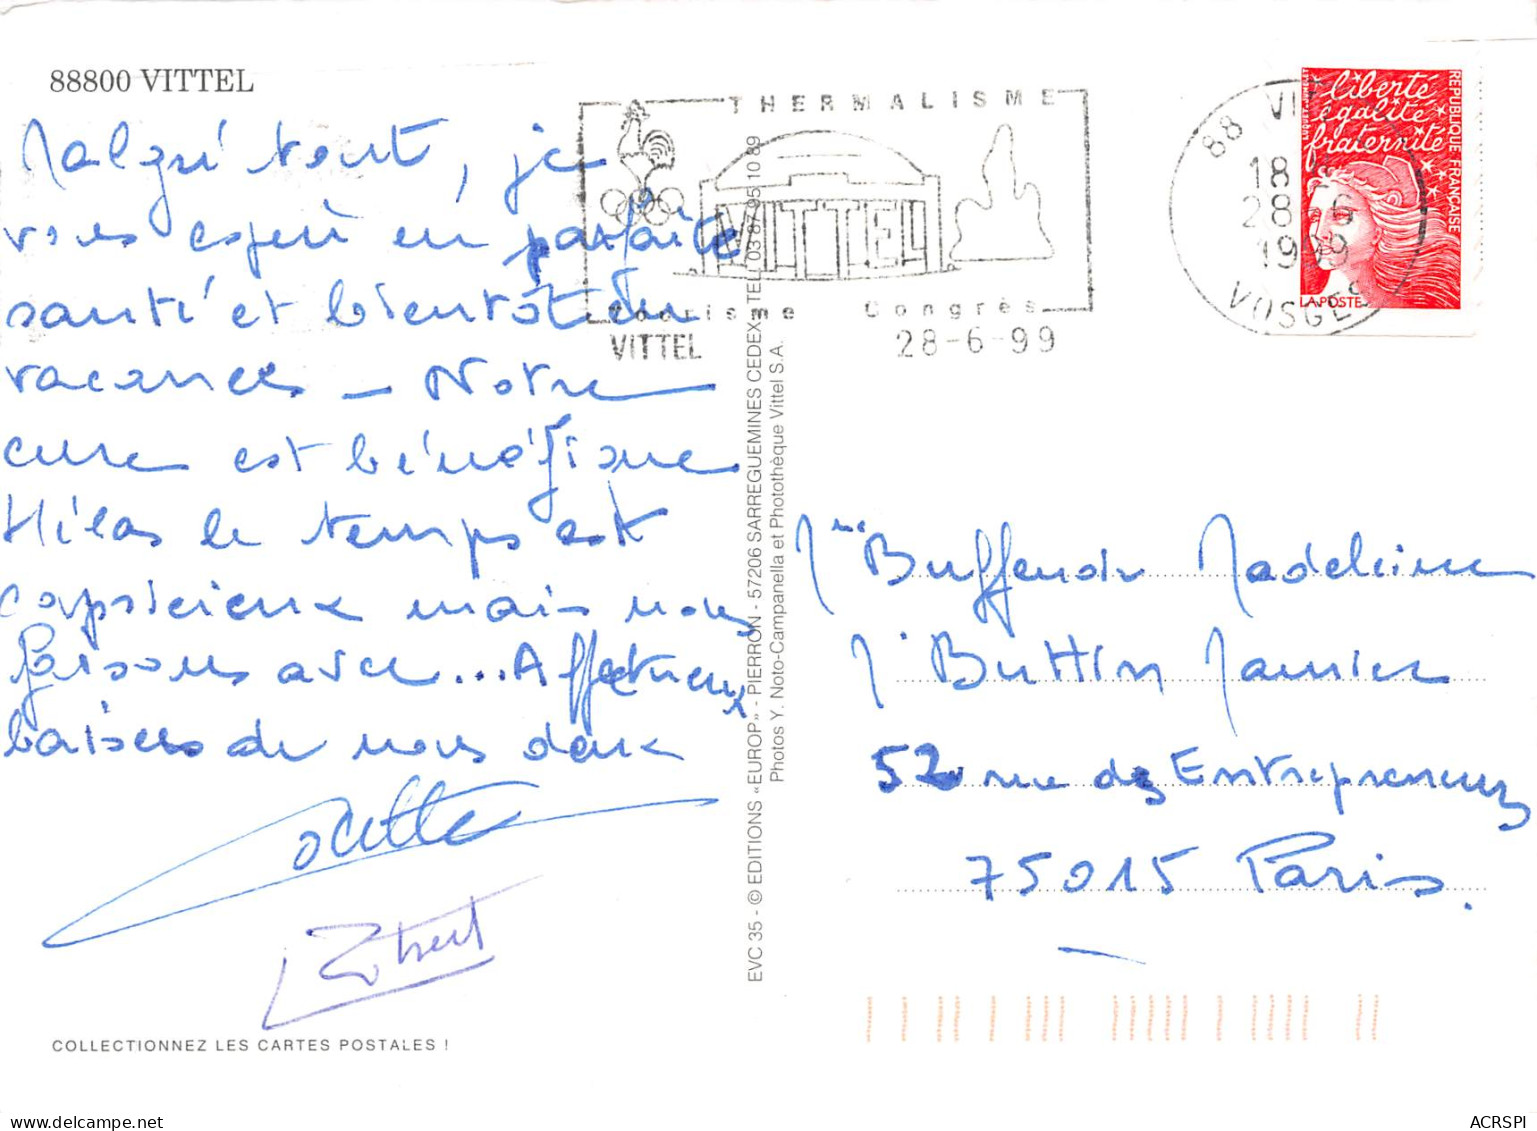 88800 VITTEL
Malgré tout, je
vous espère en parfaite
santé et bientôt en
vacances – Notre
cure est bénéfique
Hélas le temps est
capricieux mais nous
faisons avec ... Affectueux
baisers de nous deux
COLLECTIONNEZ LES CARTES POSTALES !
EVC 35 - © EDITIONS «EUROP» - PIERRON - 57206 SARREGUEMINES CEDEX TEL 03 87 95 10 89
Photos Y. Noto-Campanella et Photothèque Vittel S.A.
THERMALISME
VITTEL
Tourisme Congrès
VITTEL 28-6-99
88 VIT
18
28-6
1999
VOSGES
liberté
égalité
fraternité
REPUBLIQUE FRANÇAISE
LA POSTE
Mme Buffenoir Madeleine
M. Buttin Maurice
52 rue des Entrepreneurs
75015 Paris.
delcampe.net
ACRSPI